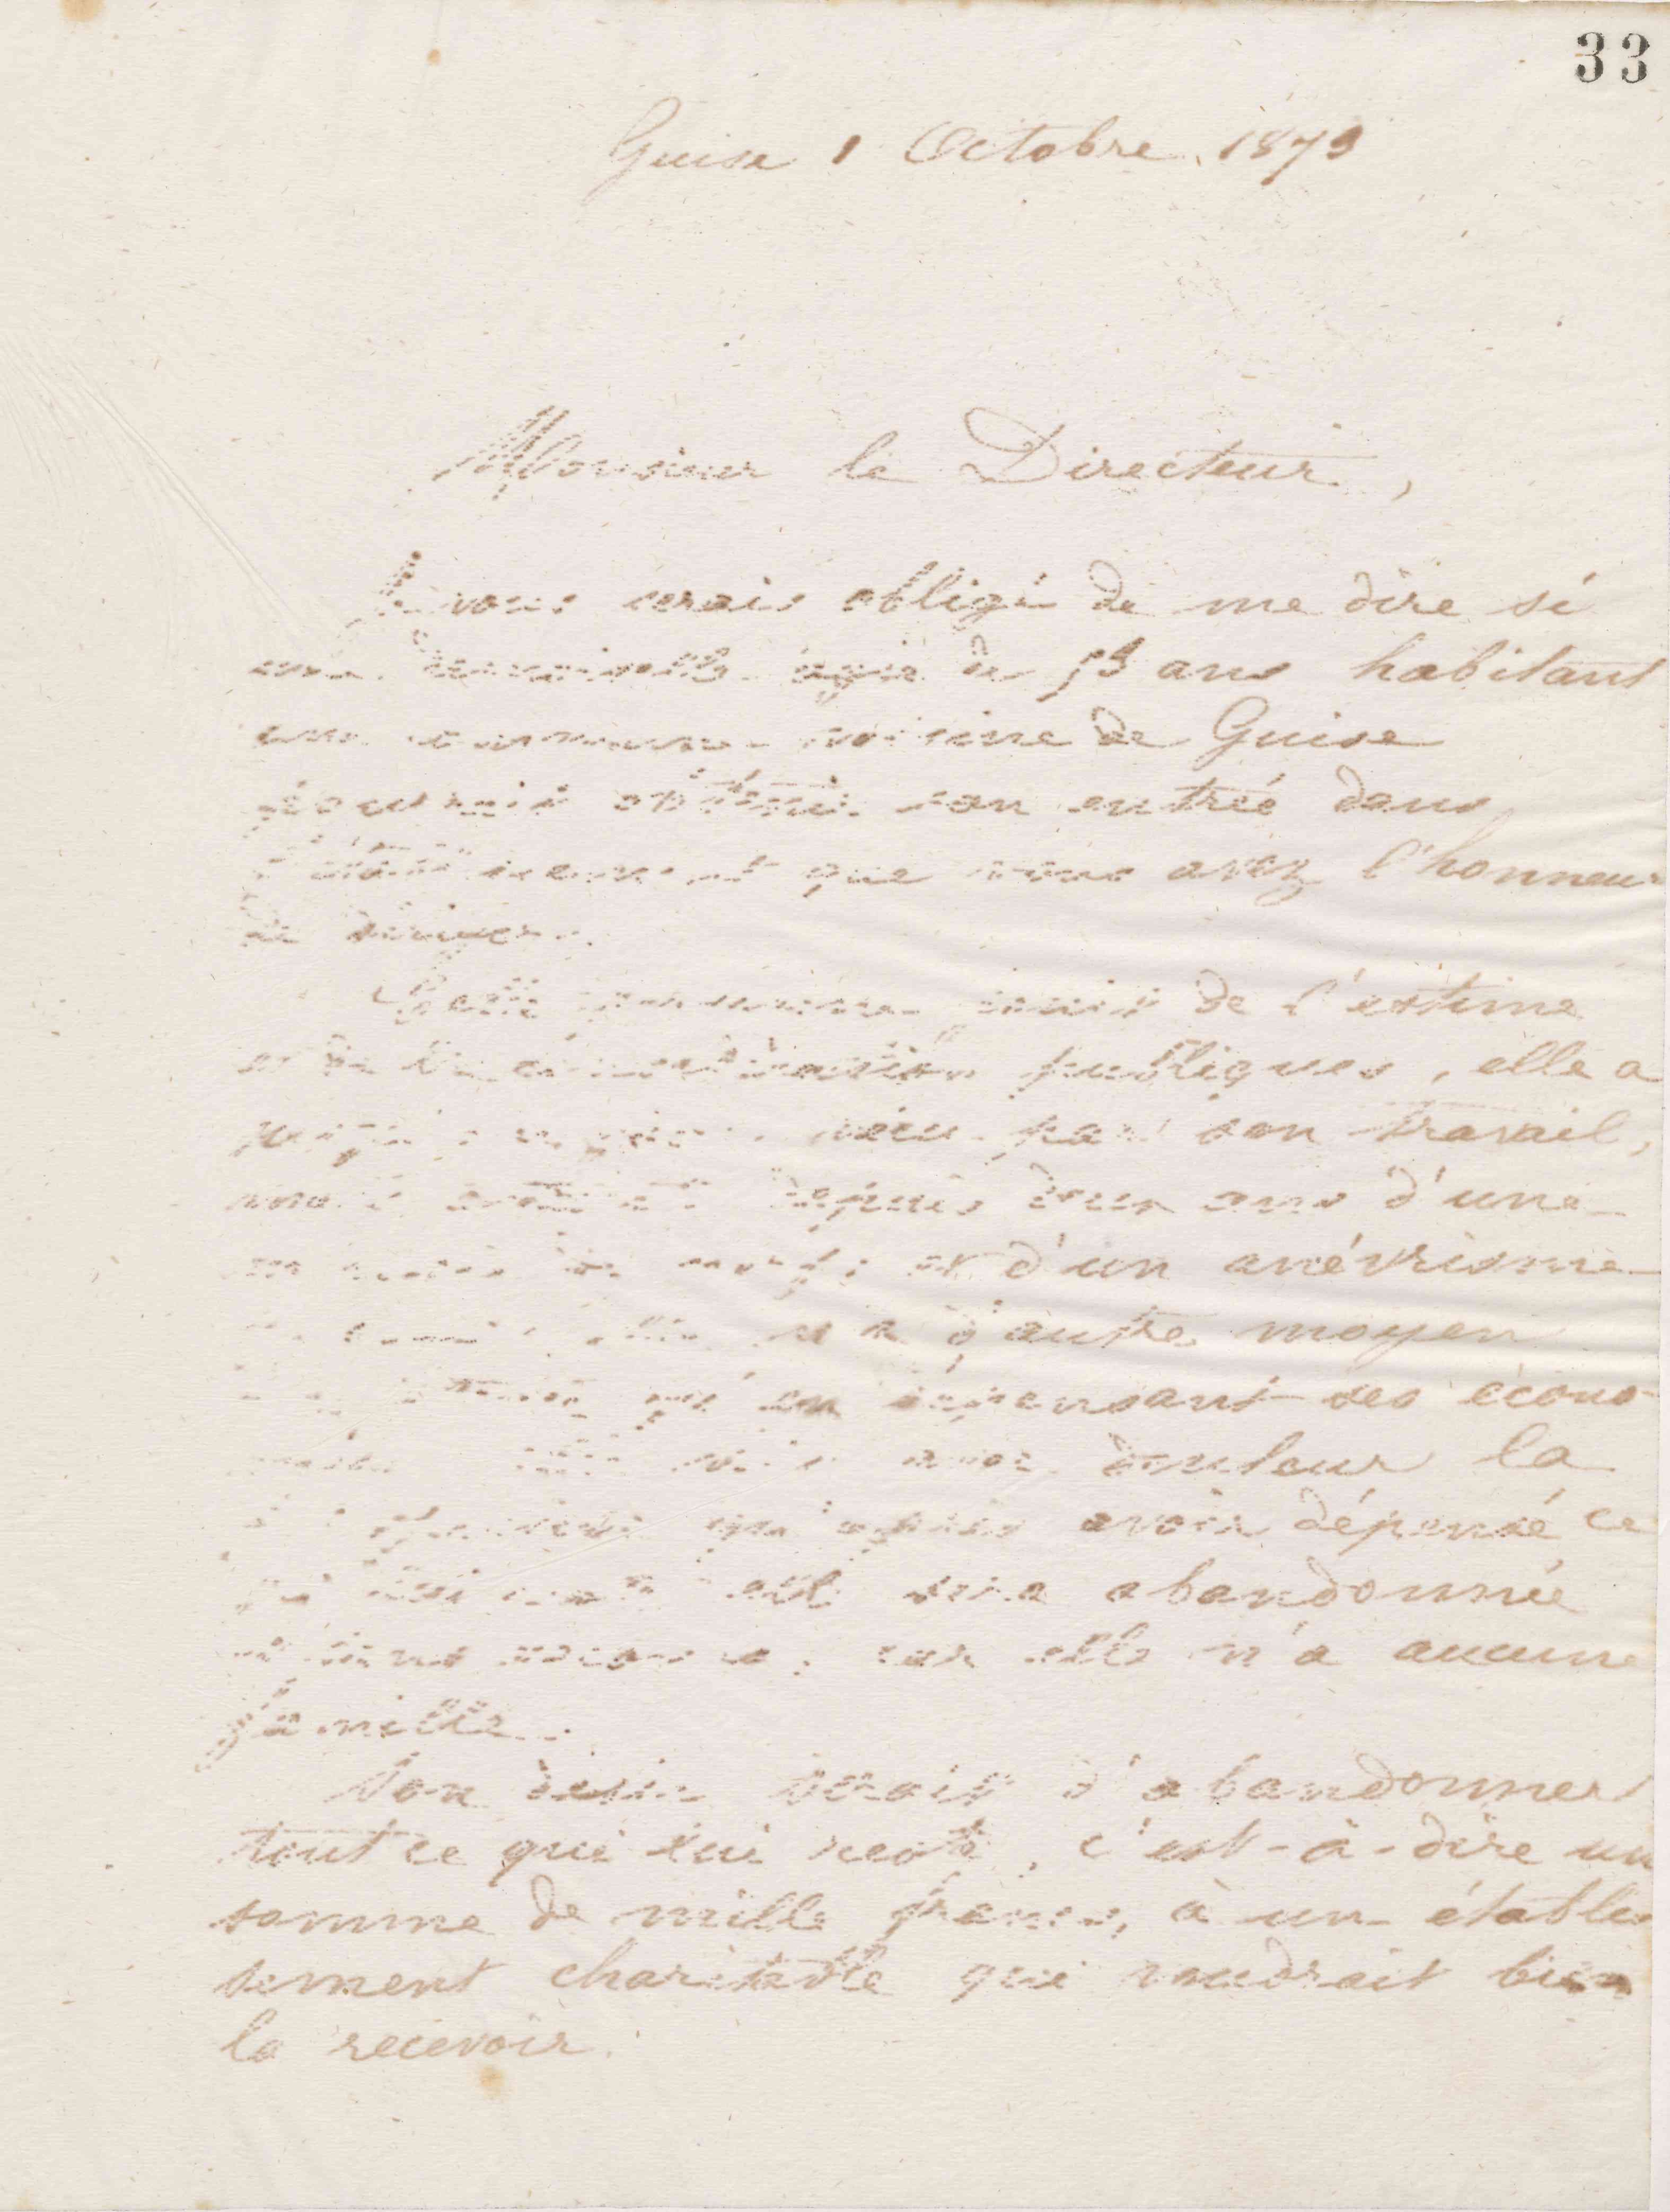 33
Guise 1 Octobre 1879
Monsieur le Directeur,
Je vous serais obligé de me dire si
une demoiselle âgée de ans habitant
une commune voisine de Guise
pourrait obtenir son entrée dans
l'établissement que vous avez l'honneur
de diriger.
Cette personne jouit de l'estime
et de la considération publiques, elle a
jusqu'ici vécu par son travail,
mais atteinte depuis deux ans d'une
et d'un anévrisme
elle n'a d'autre moyen
qu'en dépensant ses écono-
mies elle voit avec douleur la
qu'après avoir dépensé ce
qui lui reste elle sera abandonnée
car elle n'a aucune
famille.
Son désir serait d'abandonner
tout ce qui lui reste, c'est-à-dire un
somme de mille francs, à un établis
sement charitable qui voudrait bien
la recevoir.